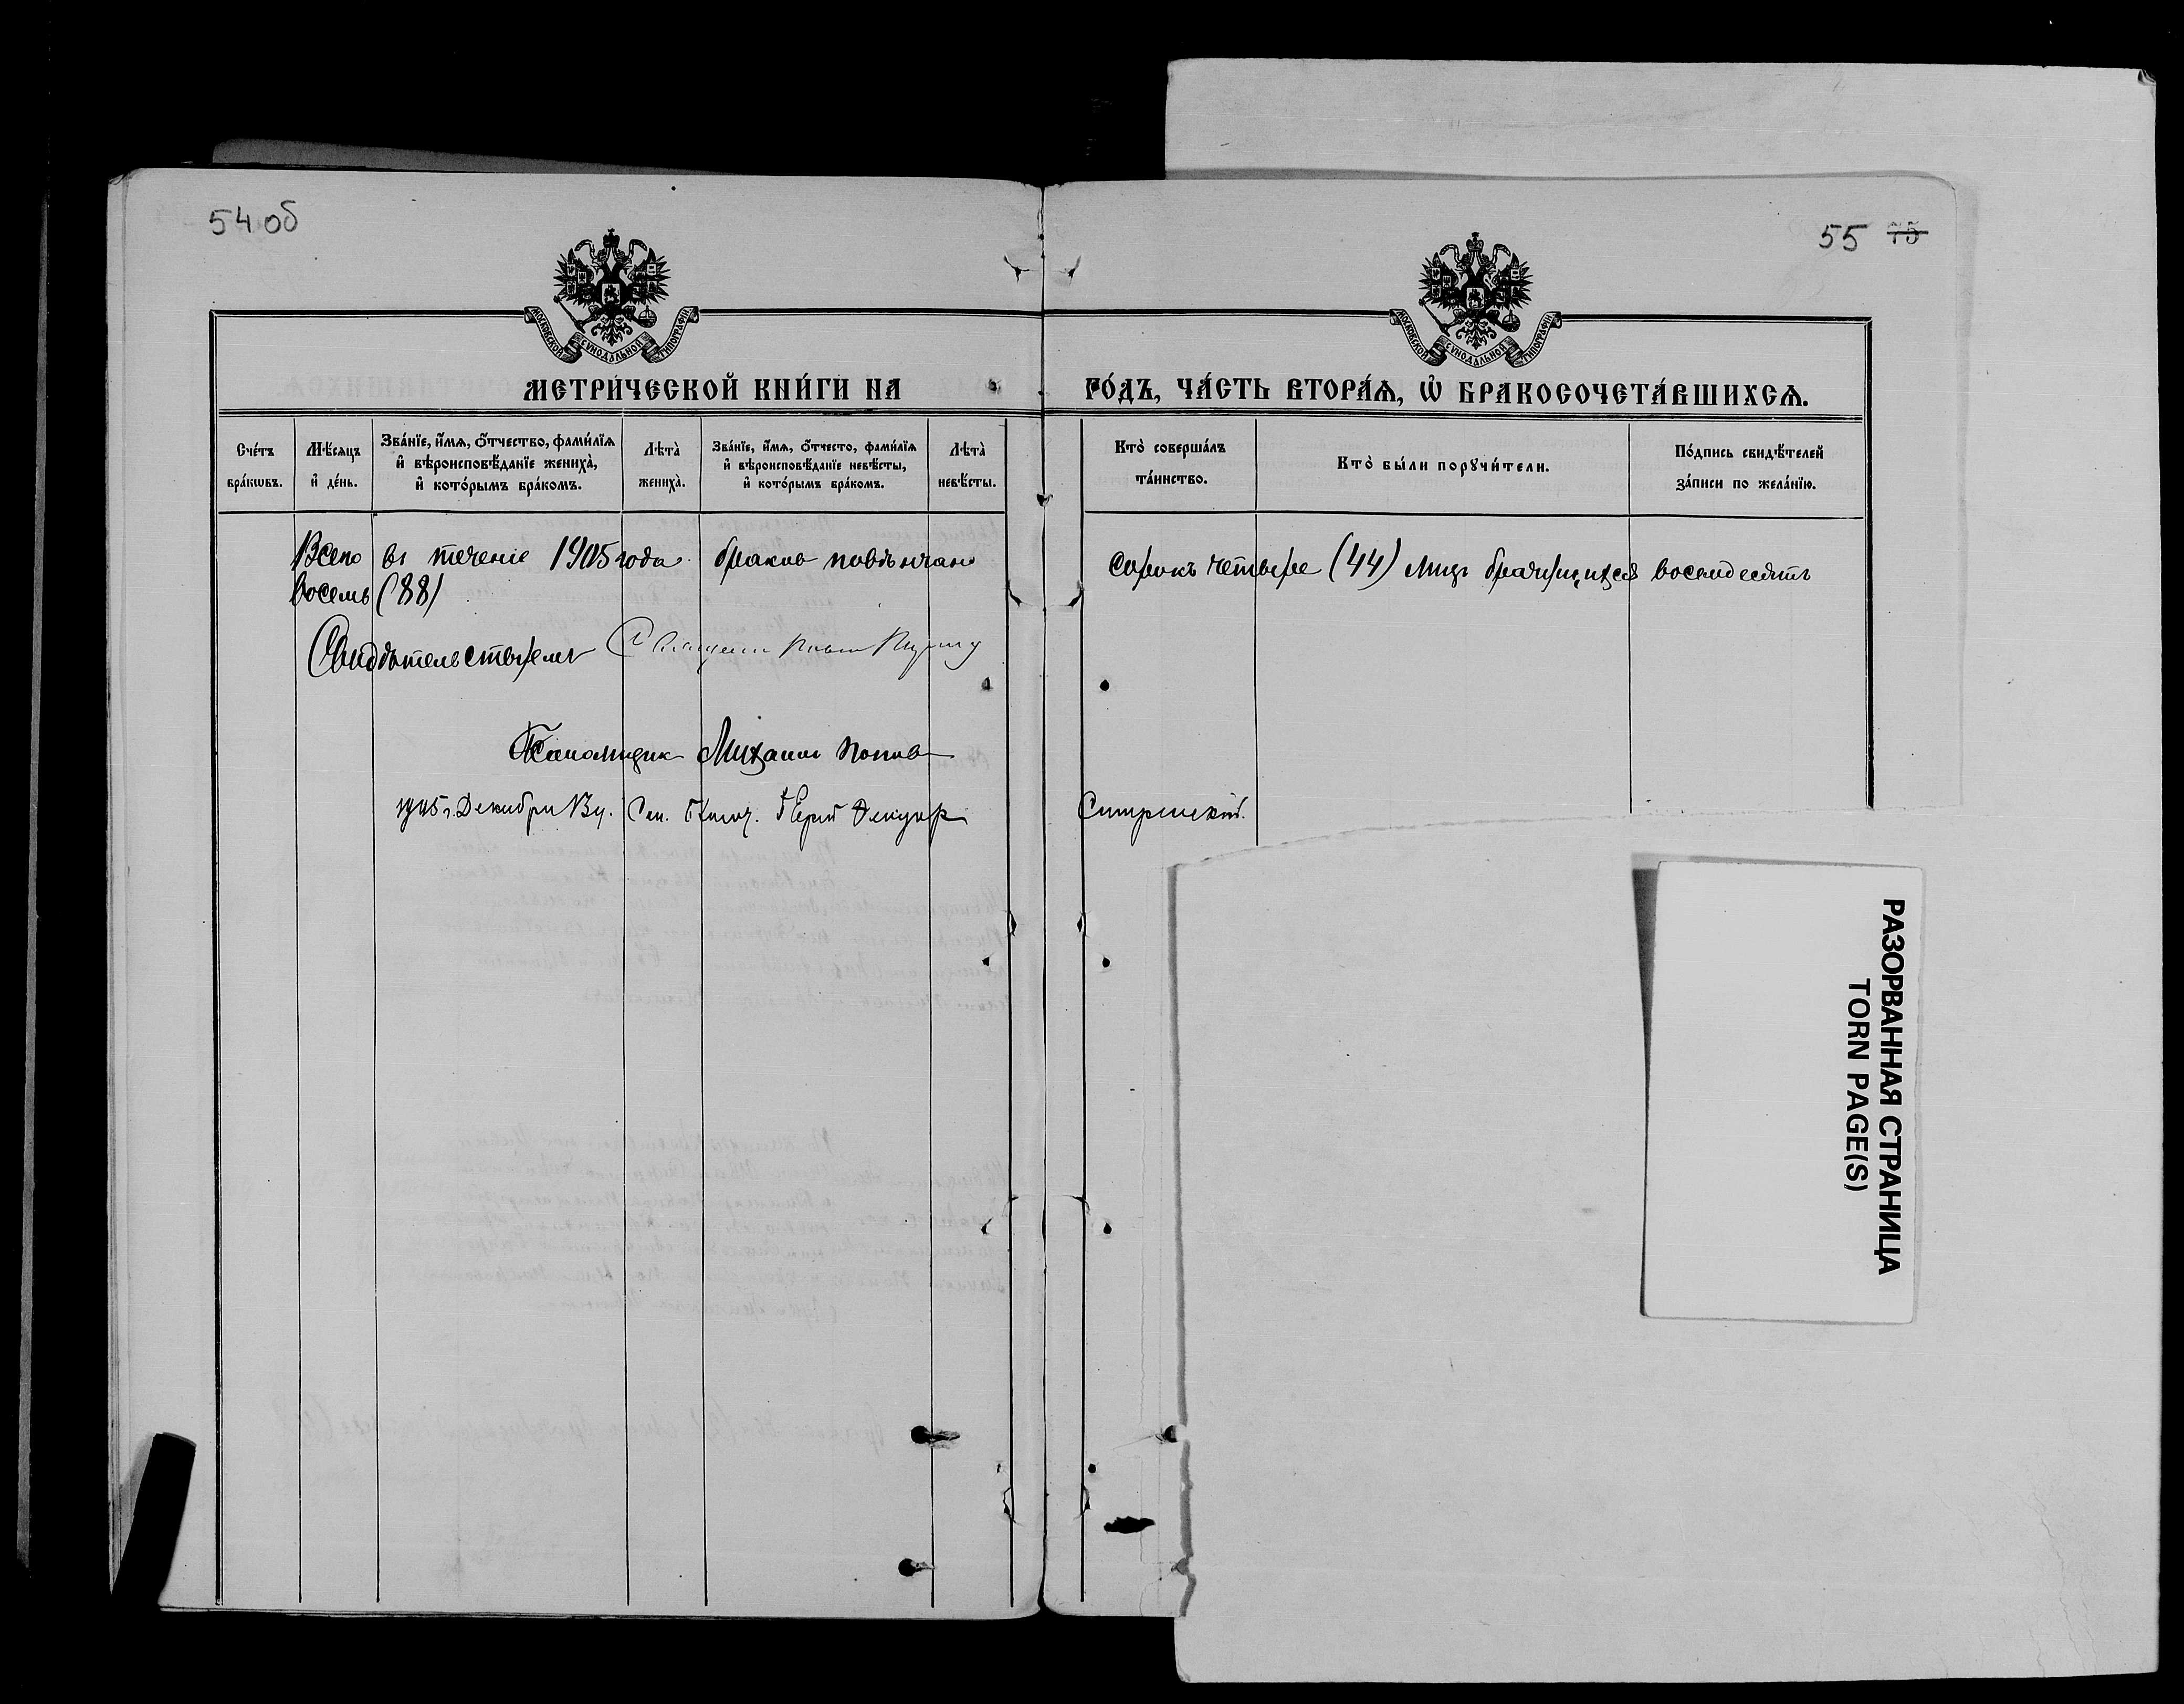 54 об
55 75
МОСКОВСКОЙ СѴНОДАЛЬНОЙ ТИПОГРАФИИ
МОСКОВСКОЙ СѴНОДАЛЬНОЙ ТИПОГРАФИИ
МЕТРИ́ЧЕСКОЙ КНИ́ГИ НА ГО́ДЪ, ЧА́СТЬ ВТОРА́Ѧ, Ѡ҆ БРАКОСОЧЕТА́ВШИХСѦ.
Сче́тъ бра́кѡвъ.
Мѣ́сѧцъ и҆ де́нь.
Зва́нїе, и҆́мѧ, ѻ҆́тчество, фами́лїѧ и҆ вѣроисповѣ́данїе жениха̀, и҆ кото́рымъ бра́комъ.
Лѣта̀ жениха̀.
Зва́нїе, и҆́мѧ, ѻ҆́тчесто, фами́лїѧ и҆ вѣроисповѣ́данїе невѣ́сты, и҆ кото́рымъ бра́комъ.
Лѣта̀ невѣ́сты.
Кто̀ соверша́лъ та́инство.
Кто̀ бы́ли порꙋчи́тели.
По́дпись свидѣ́телей за́писи по жела́нїю.
Всего въ теченіе 1905 года браковъ повѣнчано сорокъ четыре (44) лицъ брачущихся восемьдесятъ
восемь (88)
Свидѣтельствуемъ Священ
Псаломщик Михаилъ Попов
1905 г. Декабря
РАЗОРВАННАЯ СТРАНИЦА
TORN PAGE(S)